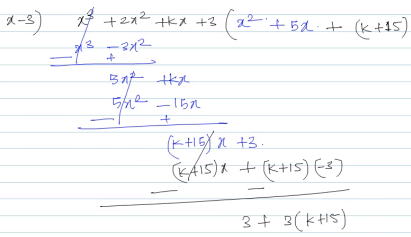 x-3) x³ + 2x² + kx + 3 ( x² + 5x + (k+15)
x³ - 3x²
— +
5x² + kx
5x² - 15x
— +
(k+15) x + 3.
(k+15)x + (k+15)(-3)
— —
3 + 3(k+15)